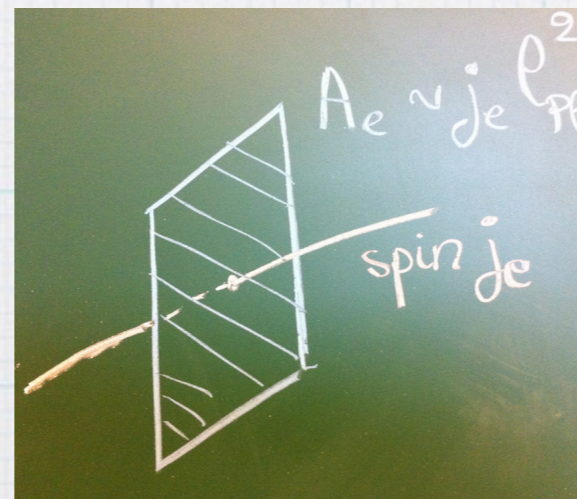 Aₑ ~ jₑ ℓ²
spin jₑ